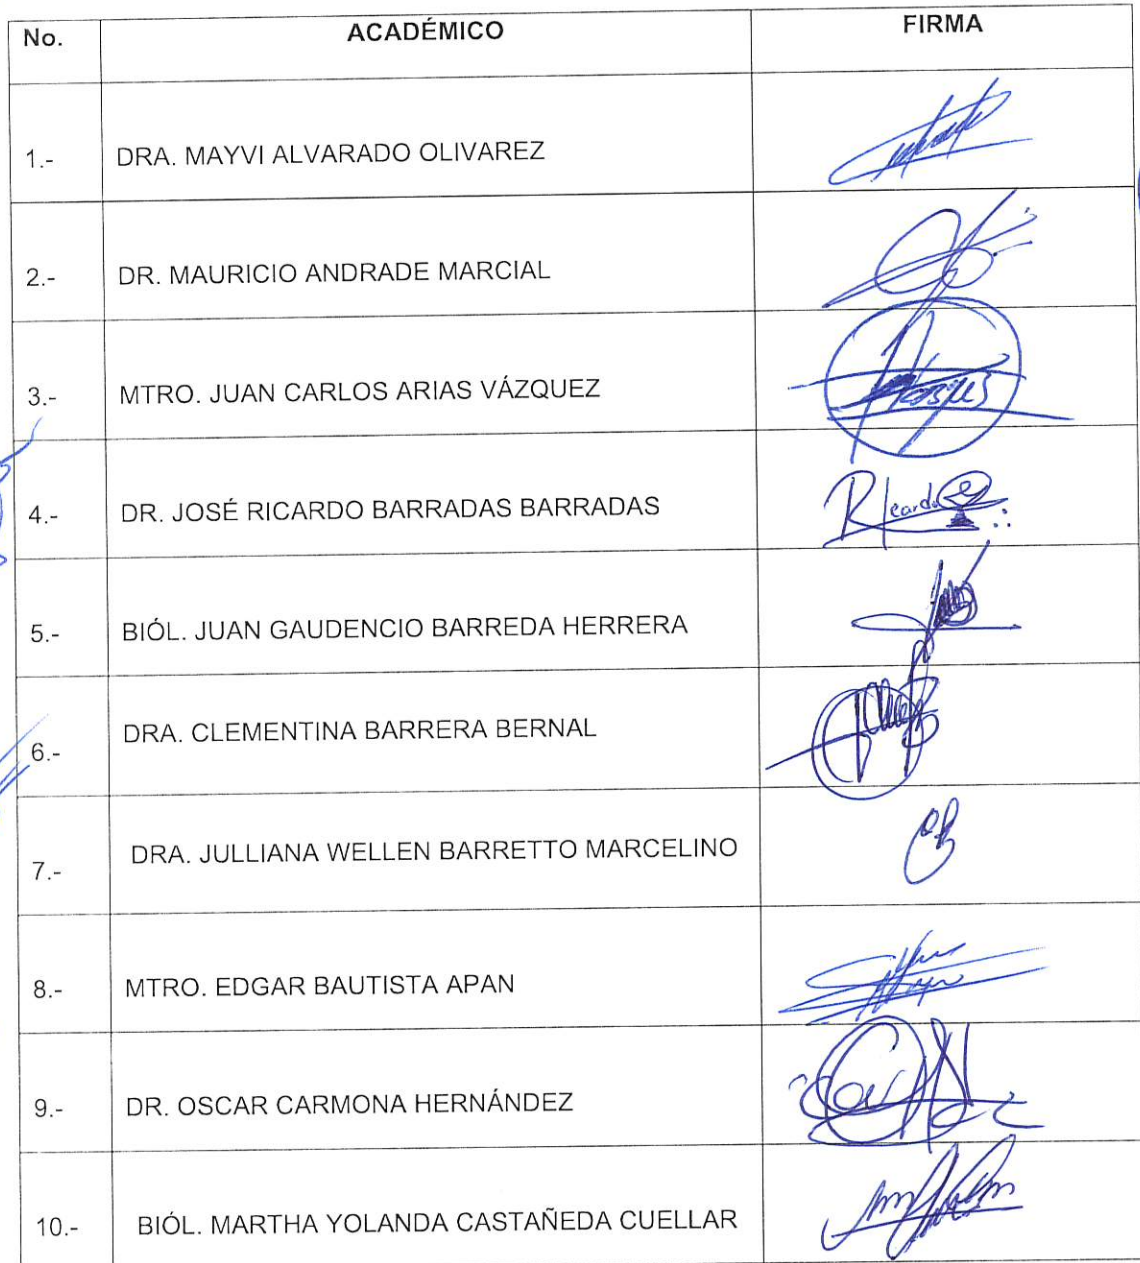 No. ACADÉMICO FIRMA
1.- DRA. MAYVI ALVARADO OLIVAREZ
2.- DR. MAURICIO ANDRADE MARCIAL
3.- MTRO. JUAN CARLOS ARIAS VÁZQUEZ
4.- DR. JOSÉ RICARDO BARRADAS BARRADAS Ricardo
5.- BIÓL. JUAN GAUDENCIO BARREDA HERRERA
6.- DRA. CLEMENTINA BARRERA BERNAL
7.- DRA. JULLIANA WELLEN BARRETTO MARCELINO
8.- MTRO. EDGAR BAUTISTA APAN
9.- DR. OSCAR CARMONA HERNÁNDEZ
10.- BIÓL. MARTHA YOLANDA CASTAÑEDA CUELLAR